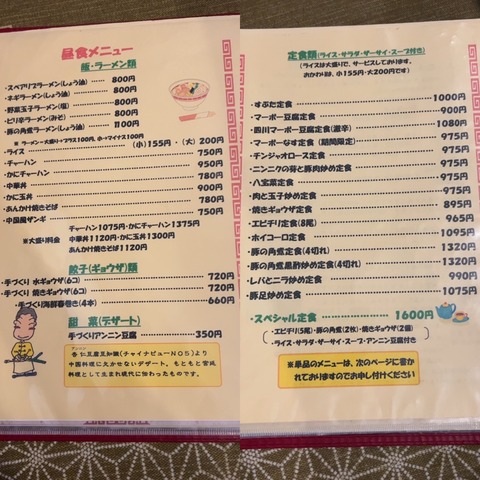 昼食メニュー
飯・ラーメン類
・スペアリブラーメン(しょう油) 800円
・ネギラーメン(しょう油) 800円
・野菜玉子ラーメン(塩) 800円
・ピリ辛ラーメン(みそ) 800円
・豚の角煮ラーメン(しょう油) 1100円
※ラーメン大盛り→プラス100円、小→マイナス100円
・ライス (小)155円・(大)200円
・チャーハン 750円
・かにチャーハン 950円
・中華丼 780円
・かに玉丼 900円
・あんかけ焼きそば 780円
・中国風ザンギ 750円
※大盛り料金
チャーハン1075円・かにチャーハン1375円
中華丼1120円・かに玉丼1300円
あんかけ焼きそば1120円
餃子(ギョウザ)類
・手づくり 水ギョウザ(6コ) 720円
・手づくり 焼きギョウザ(6コ) 720円
・手づくり海鮮春巻き(4本) 660円
甜菜(デザート)
手づくりアンニン豆腐 350円
杏仁豆腐豆知識(チャイナビューNO5)より
中国料理に欠かせないデザート。もともと宮廷
料理として生まれ現代に伝わったものです。
定食類(ライス・サラダ・ザーサイ・スープ付き)
(ライスは大盛りで、サービスしております。
おかわりは、小155円・大200円です)
・すぶた定食 1000円
・マーボー豆腐定食 900円
・四川マーボー豆腐定食(激辛) 1080円
・マーボーなす定食(期間限定) 975円
・チンジャオロース定食 975円
・ニンニクの芽と豚肉炒め定食 975円
・八宝菜定食 975円
・肉と玉子炒め定食 975円
・焼きギョウザ定食 895円
・エビチリ定食(8尾) 965円
・ホイコーロ定食 1095円
・豚の角煮定食(4切れ) 1320円
・豚の角煮黒酢炒め定食(4切れ) 1320円
・レバとニラ炒め定食 990円
・豚足炒め定食 1075円
・スペシャル定食 1600円
(・エビチリ(5尾)・豚の角煮(2枚)・焼きギョウザ(2個)
・ライス・サラダ・ザーサイ・スープ・アンニン豆腐付き)
※単品のメニューは、次のページに書か
れておりますのでお申し付けください